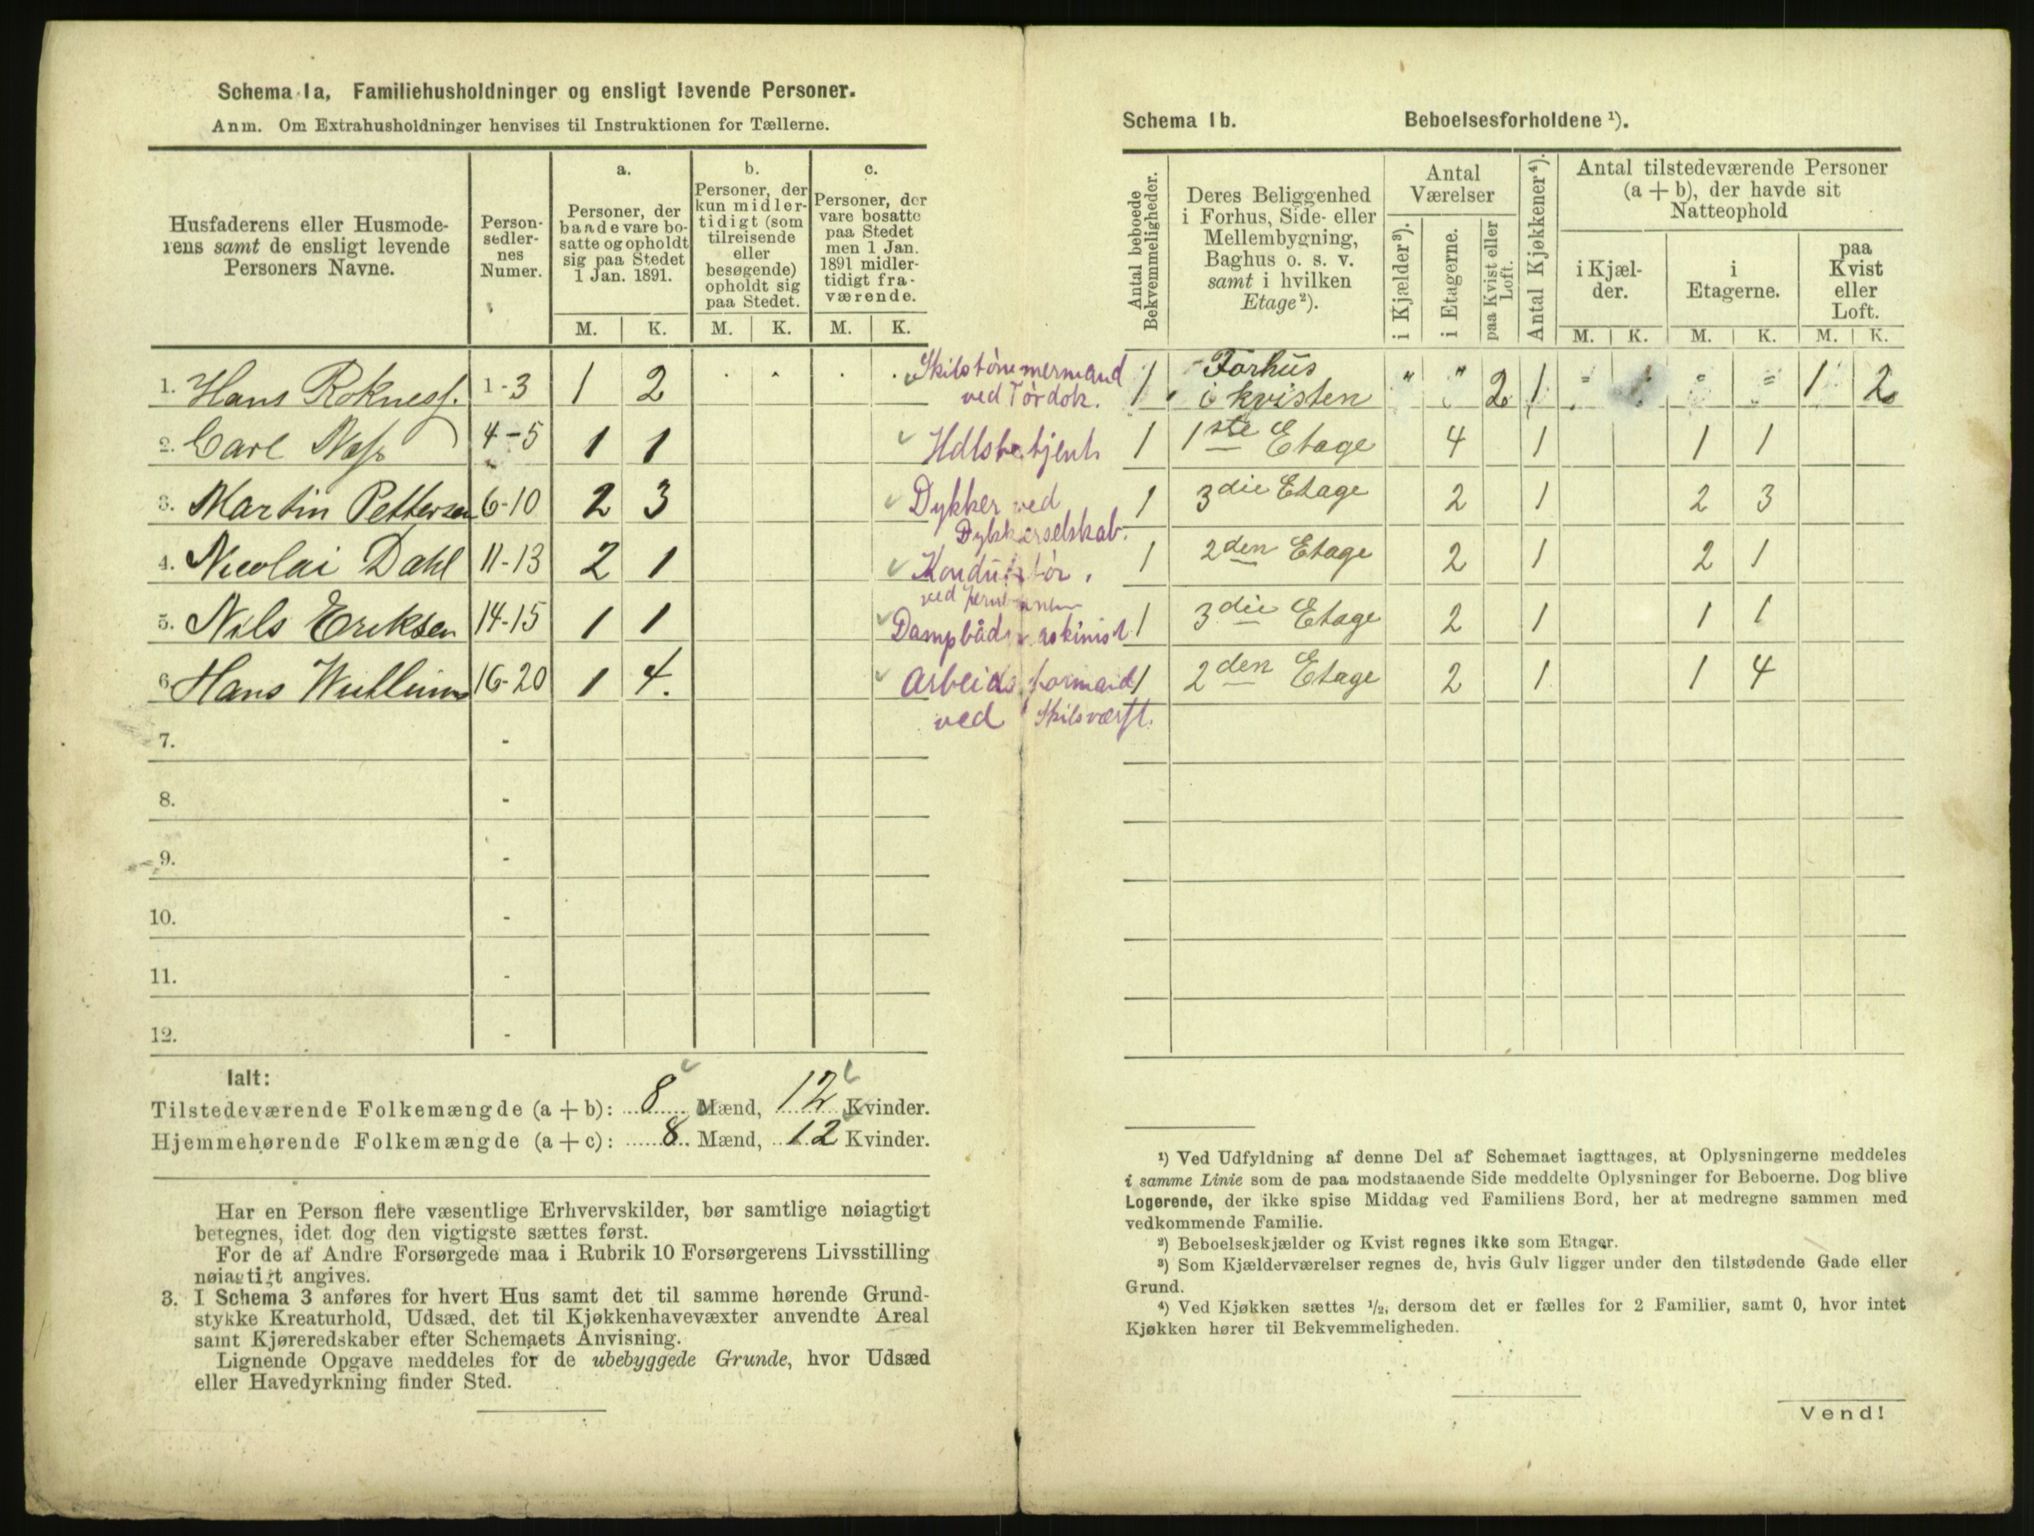 Schema 1a, Familiehusholdninger og ensligt levende Personer.
Anm. Om Extrahusholdninger henvises til Instruktionen for Tællerne.
Husfaderens eller Husmoderens samt de ensligt levende Personers Navne.
Personsedlernes Numer.
a. Personer, der baade vare bosatte og opholdt sig paa Stedet 1 Jan. 1891.
b. Personer, der kun midlertidigt (som tilreisende eller besøgende) opholdt sig paa Stedet.
c. Personer, der vare bosatte paa Stedet men 1 Jan. 1891 midlertidigt fraværende.
M. K. M. K. M. K.
1. Hans Rokness. 1-3 1 2 Skibstømmermand ved Tørdok.
2. Carl Næss 4-5 1 1 Hdlsbetjent
3. Martin Pettersen 6-10 2 3 Dykker ved Dykkerselskab.
4. Nicolai Dahl 11-13 2 1 Konduktør ved Jernbanen
5. Nils Eriksen 14-15 1 1 Dampbådmaskinist
6. Hans Wullum 16-20 1 4. Arbeidsformand ved Skibsværft.
7. -
8. -
9. -
10. -
11. -
12. -
Ialt:
Tilstedeværende Folkemængde (a + b): 8 Mænd, 12 Kvinder.
Hjemmehørende Folkemængde (a + c): 8 Mænd, 12 Kvinder.
Har en Person flere væsentlige Erhvervskilder, bør samtlige nøiagtigt
betegnes, idet dog den vigtigste sættes først.
For de af Andre Forsørgede maa i Rubrik 10 Forsørgerens Livsstilling
nøiagtigt angives.
3. I Schema 3 anføres for hvert Hus samt det til samme hørende Grund-
stykke Kreaturhold, Udsæd, det til Kjøkkenhavevæxter anvendte Areal
samt Kjøreredskaber efter Schemaets Anvisning.
Lignende Opgave meddeles for de ubebyggede Grunde, hvor Udsæd
eller Havedyrkning finder Sted.
Schema 1b. Beboelsesforholdene ¹).
Antal beboede Bekvemmeligheder.
Deres Beliggenhed i Forhus, Side- eller Mellembygning, Baghus o. s. v. samt i hvilken Etage ²).
Antal Værelser
i Kjælder ³).
i Etagerne.
paa Kvist eller Loft.
Antal Kjøkkener ⁴).
Antal tilstedeværende Personer (a + b), der havde sit Natteophold
i Kjælder.
i Etagerne.
paa Kvist eller Loft.
M. K. M. K. M. K.
1 Forhus i kvisten " " 2 1 " " " 1 2
1 1ste Etage 4 1 1 1
1 3die Etage 2 1 2 3
1 2den Etage 2 1 2 1
1 3die Etage 2 1 1 1
1 2den Etage 2 1 1 4
¹) Ved Udfyldning af denne Del af Schemaet iagttages, at Oplysningerne meddeles
i samme Linie som de paa modstaaende Side meddelte Oplysninger for Beboerne. Dog blive
Logerende, der ikke spise Middag ved Familiens Bord, her at medregne sammen med
vedkommende Familie.
²) Beboelseskjælder og Kvist regnes ikke som Etager.
³) Som Kjælderværelser regnes de, hvis Gulv ligger under den tilstødende Gade eller
Grund.
⁴) Ved Kjøkken sættes ½, dersom det er fælles for 2 Familier, samt 0, hvor intet
Kjøkken hører til Bekvemmeligheden.
Vend!